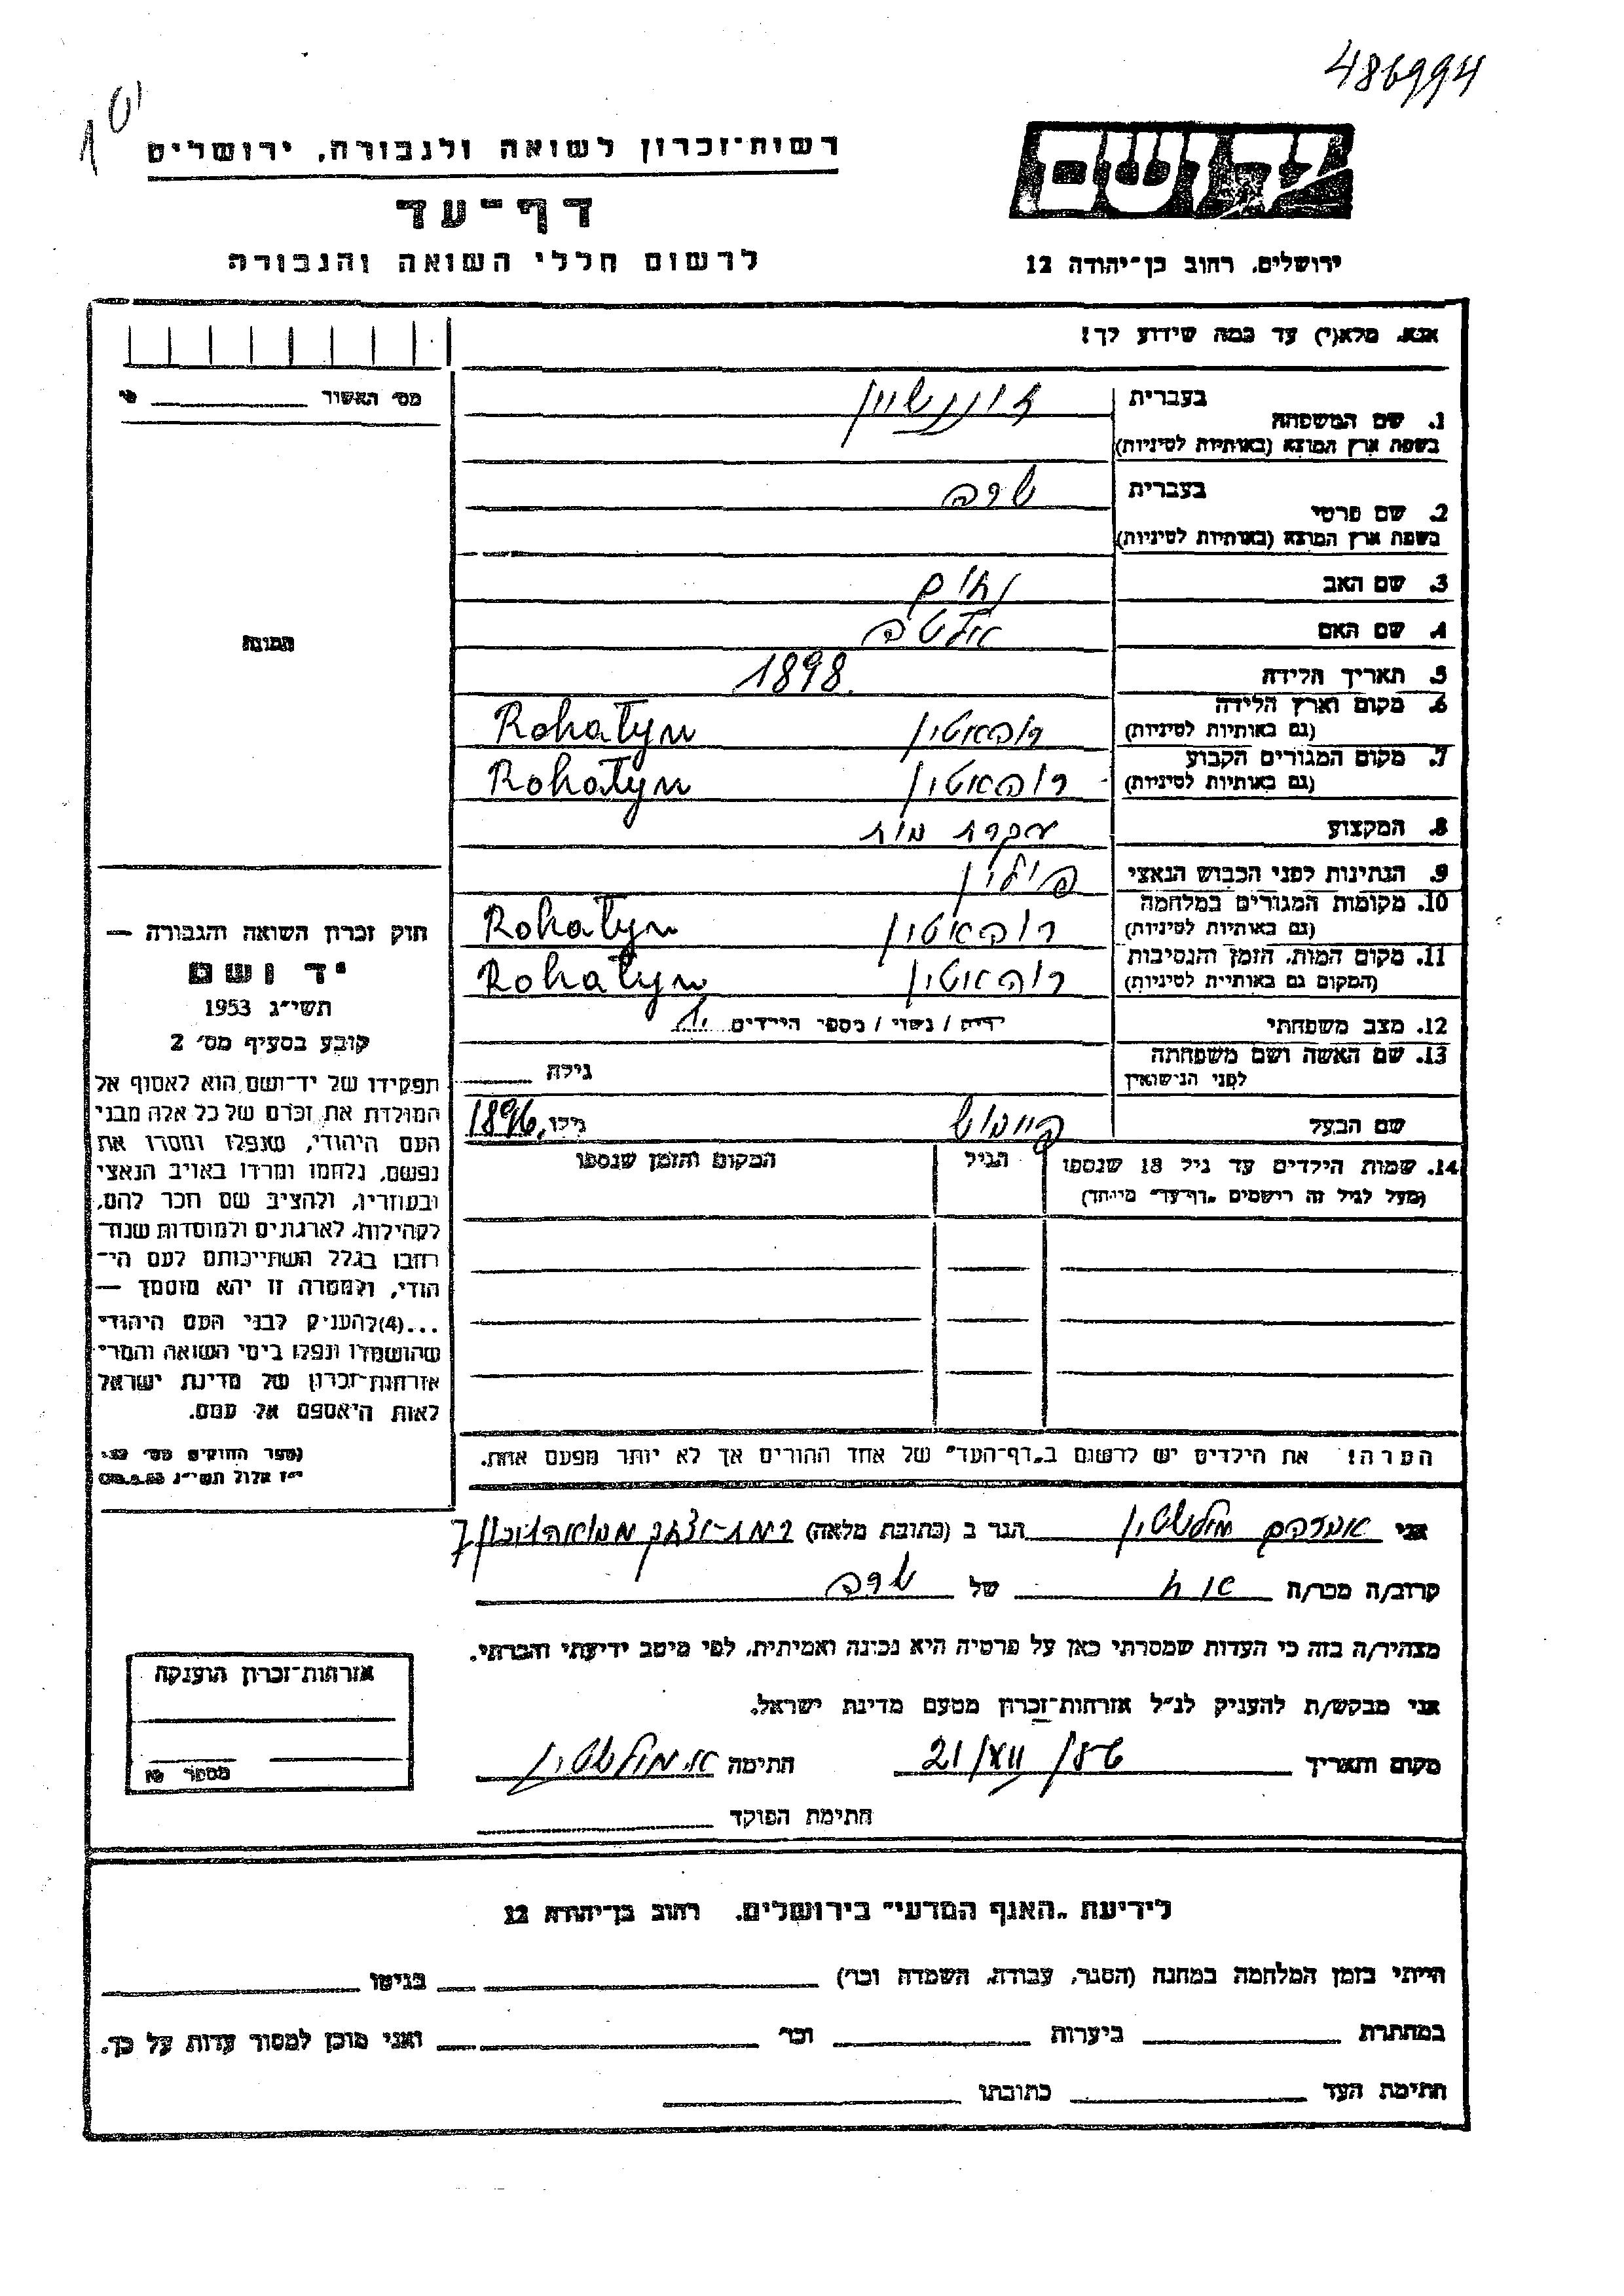 486994
יד ושם
רשות־זכרון לשואה ולגבורה, ירושלים
דף־עד
לרשום חללי השואה והגבורה
ירושלים, רחוב בן־יהודה 12
אנא, מלא(י) עד כמה שידוע לך!
מס׳ האשור
בעברית
1. שם המשפחה
בשפת ארץ המוצא (באותיות לטיניות)
בעברית שרה
2. שם פרטי
בשפת ארץ המוצא (באותיות לטיניות)
3. שם האב
4. שם האם
5. תאריך הלידה 1898
6. מקום וארץ הלידה רוהאטין Rohatyn
(גם באותיות לטיניות)
7. מקום המגורים הקבוע רוהאטין Rohatyn
(גם באותיות לטיניות)
8. המקצוע עקרת בית
9. הנתינות לפני הכבוש הנאצי פולין
10. מקומות המגורים במלחמה רוהאטין Rohatyn
(גם באותיות לטיניות)
11. מקום המות, הזמן והנסיבות רוהאטין Rohatyn
(המקום גם באותיות לטיניות)
12. מצב משפחתי / נשוי / מספר הילדים
13. שם האשה ושם משפחתה
לפני הנישואין גילה
שם הבעל גילו, 1896
14. שמות הילדים עד גיל 18 שנספו הגיל המקום והזמן שנספו
(מעל לגיל זה רישמים „דף־עד״ מיוחד)
הערה! את הילדים יש לרשום ב„דף־העד״ של אחד ההורים אך לא יותר מפעם אחת.
התמונה
חוק זכרון השואה והגבורה —
יד ושם
תשי״ג 1953
קובע בסעיף מס׳ 2
תפקידו של יד־ושם הוא לאסוף אל
המולדת את זכרם של כל אלה מבני
העם היהודי, שנפלו ומסרו את
נפשם, נלחמו ומרדו באויב הנאצי
ובעוזריו, ולהציב שם וזכר להם,
לקהילות, לארגונים ולמוסדות שנח־
רבו בגלל השתייכותם לעם הי־
הודי, ולמטרה זו יהא מוסמך —
...(4)להעניק לבני העם היהודי
שהושמדו ונפלו בימי השואה והמרי
אזרחות־זכרון של מדינת ישראל
לאות היאספם אל עמם.
י״ז אלול תשי״ג
אני אברהם הגר ב (כתובת מלאה)
קרוב/ה מכר/ה אח של שרה
מצהיר/ה בזה כי העדות שמסרתי כאן על פרטיה היא נכונה ואמיתית, לפי מיטב ידיעתי והכרתי.
אני מבקש/ת להעניק לנ״ל אזרחות־זכרון מטעם מדינת ישראל.
מקום ותאריך חתימה
חתימת הפוקד
אזרחות־זכרון הוענקה
מספר
לידיעת „האגף המדעי״ בירושלים, רחוב בן־יהודה 12
הייתי בזמן המלחמה במחנה (הסגר, עבודה, השמדה וכו׳) בגיטו
במחתרת ביערות וכו׳ ואני מוכן למסור עדות על כך.
חתימת העד כתובתו